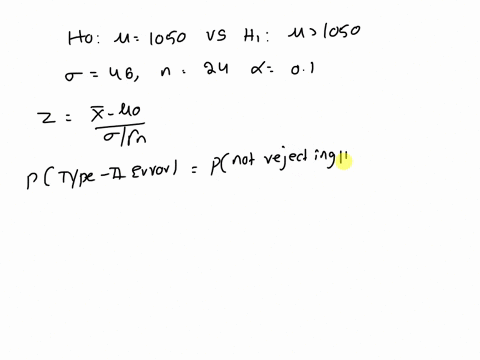 Ho: μ = 1050 vs H1: μ > 1050
σ = 46, n = 24 α = 0.1
Z = x̄ - μo / σ/√n
P( Type-II Error) = P( not rejecting H